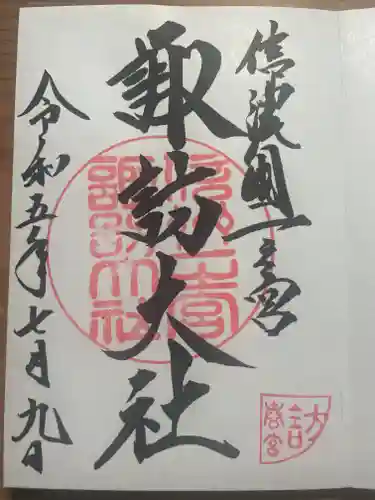 信濃國一之宮
諏訪大社
令和五年七月九日
信濃一宮
諏訪大社